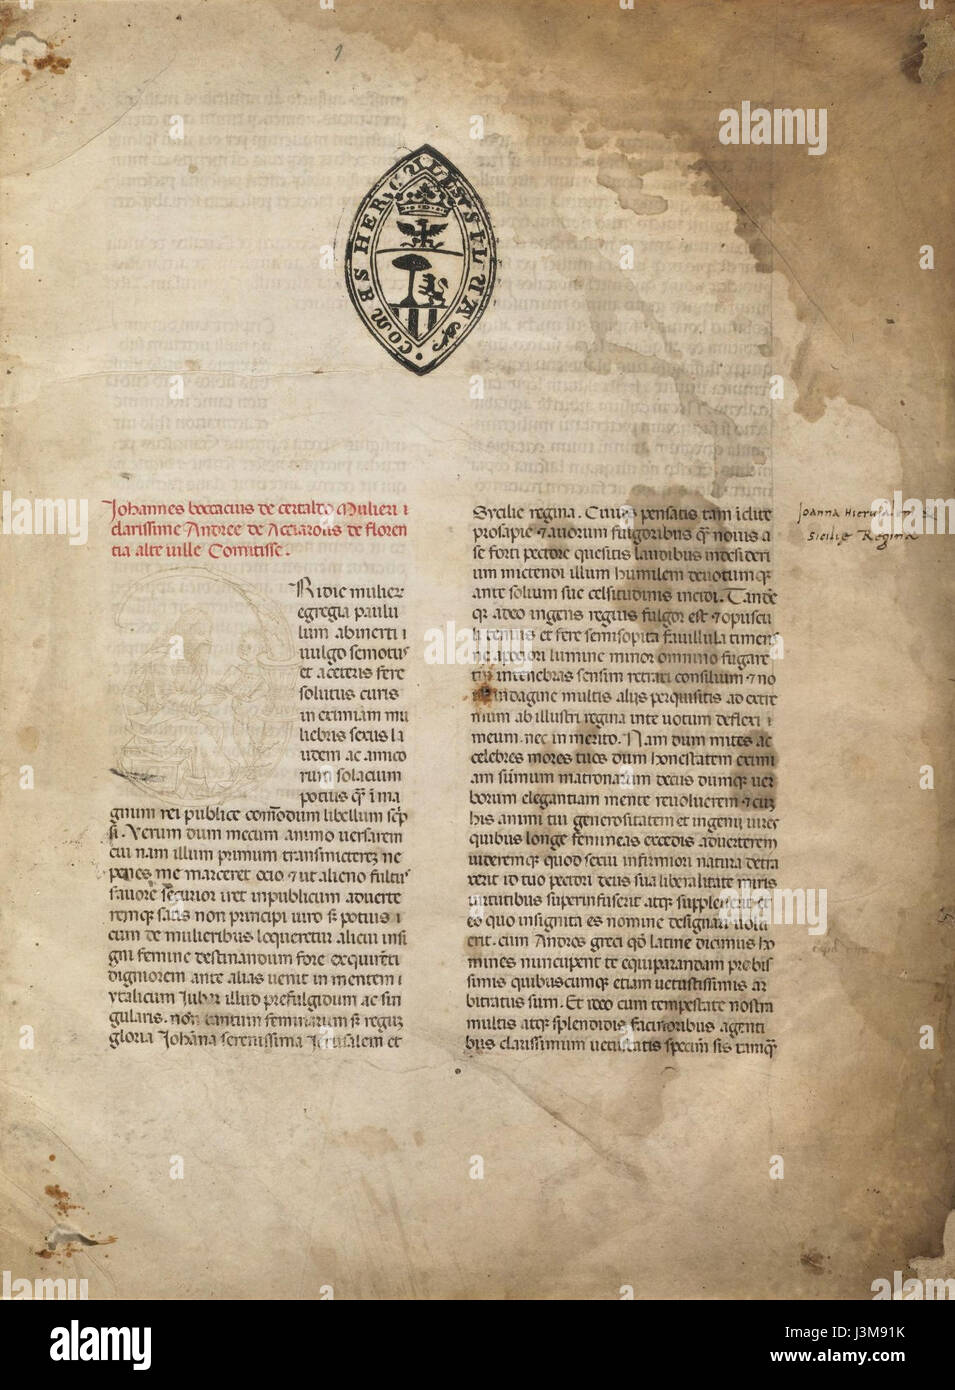 1
COMES HERCULES SILVA
Johannes boccacius de certaldo mulieri i
clarissime Andree de Acciarolis de floren
tia alte ville Comitisse.
Ridie mulier
egregia paulu
lum ab inerti i
vulgo semotus
et a ceteris fere
solutus curis
in eximiam mu
liebris sexus la
udem ac amico
rum solacium
potius qͣ i ma
gnum rei publice comodum libellum scͥp
si. Verum dum mecum animo versarem
cui nam illum primum transmicterez ne
penes me marceret ocio et ut alieno fultus
favore securior iret in publicum adverte
remqꝫ satis non principi viro sꝫ potius i
cum de mulieribus loqueretur alicui insi
gni femine destinandum fore exquirenti
digniorem ante alias venit in mentem i
ytalicum iubar illud prefulgidum ac sin
gularis. non tantum feminarum sꝫ regum
gloria Johāna serenissima Jerusalem et
Sycilie regina. Cuius pensatis tam i clite
prosapie et avorum fulgoribus qͣ novis a
se forti pectore quesitis laudibus in desideri
um mictendi illum humilem devotumqꝫ
ante solium sue celsitudinis incidi. Tande
qꝫ adeo ingens regius fulgor est et opuscu
li tenuis et fere semisopita favillula timens
ne a pociori lumine minor omnino fugare
in tenebras sensim retraxi consilium et no
indagine multis aliis perquisitis ad extre
mum ab illustri regina in te votum deflexi i
meum. nec inmerito. Nam dum mites ac
celebres mores tuos dum honestatem eximi
am summum matronarum decus dumqꝫ ver
borum elegantiam mente revolverem et cuꝫ
his animi tui generositatem et ingenii vires
quibus longe femineas excedis adverterem
videremqꝫ quod sexui infirmiori natura detra
xerit id tuo pectori deus sua liberalitate miris
virtutibus superinfuserit atqꝫ suppleverit et
eo quo insignita es nomine designari volu
erit. cum Andros greci qđ latine dicimus ho
mines nuncupent te equiparandam probis
simis quibuscumqꝫ etiam vetustissimis ar
bitratus sum. Et ideo cum tempestate nostra
multis atqꝫ splendidis facinoribus agenti
bus clarissimum vetustatis specim sis tamqͣ
Joanna Hierusalem &
Sicilię Regina
alamy
a
alamy stock photo
J3M91K
www.alamy.com